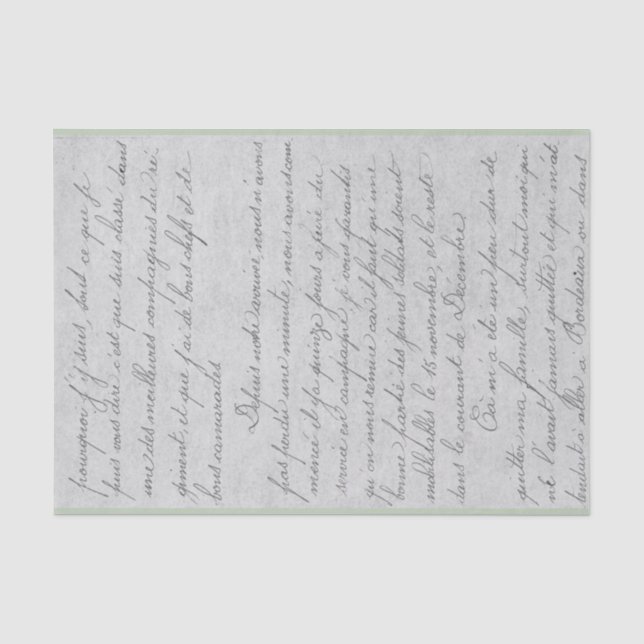 pourquoi j'y suis, tout ce que je
puis vous dire c'est que suis classé dans
une des meilleures compagnies du ré
giment, et que j'ai de bons chefs et de
bons camarades
Depuis notre arrivée, nous n'avons
pas perdu une minute, nous avons com
mencé il y a quinze jours à faire du
service en campagne je vous garantis
qu'on nous remue car il faut qu'une
bonne partie des jeunes soldats soient
mobilisables le 15 novembre, et le reste
dans le courant de Decembre.
Cà m'a été un peu dur de
quitter ma famille, surtout moi qui
ne l'avait jamais quittée et qui m'at
tendait à aller à Bordeaux ou dans